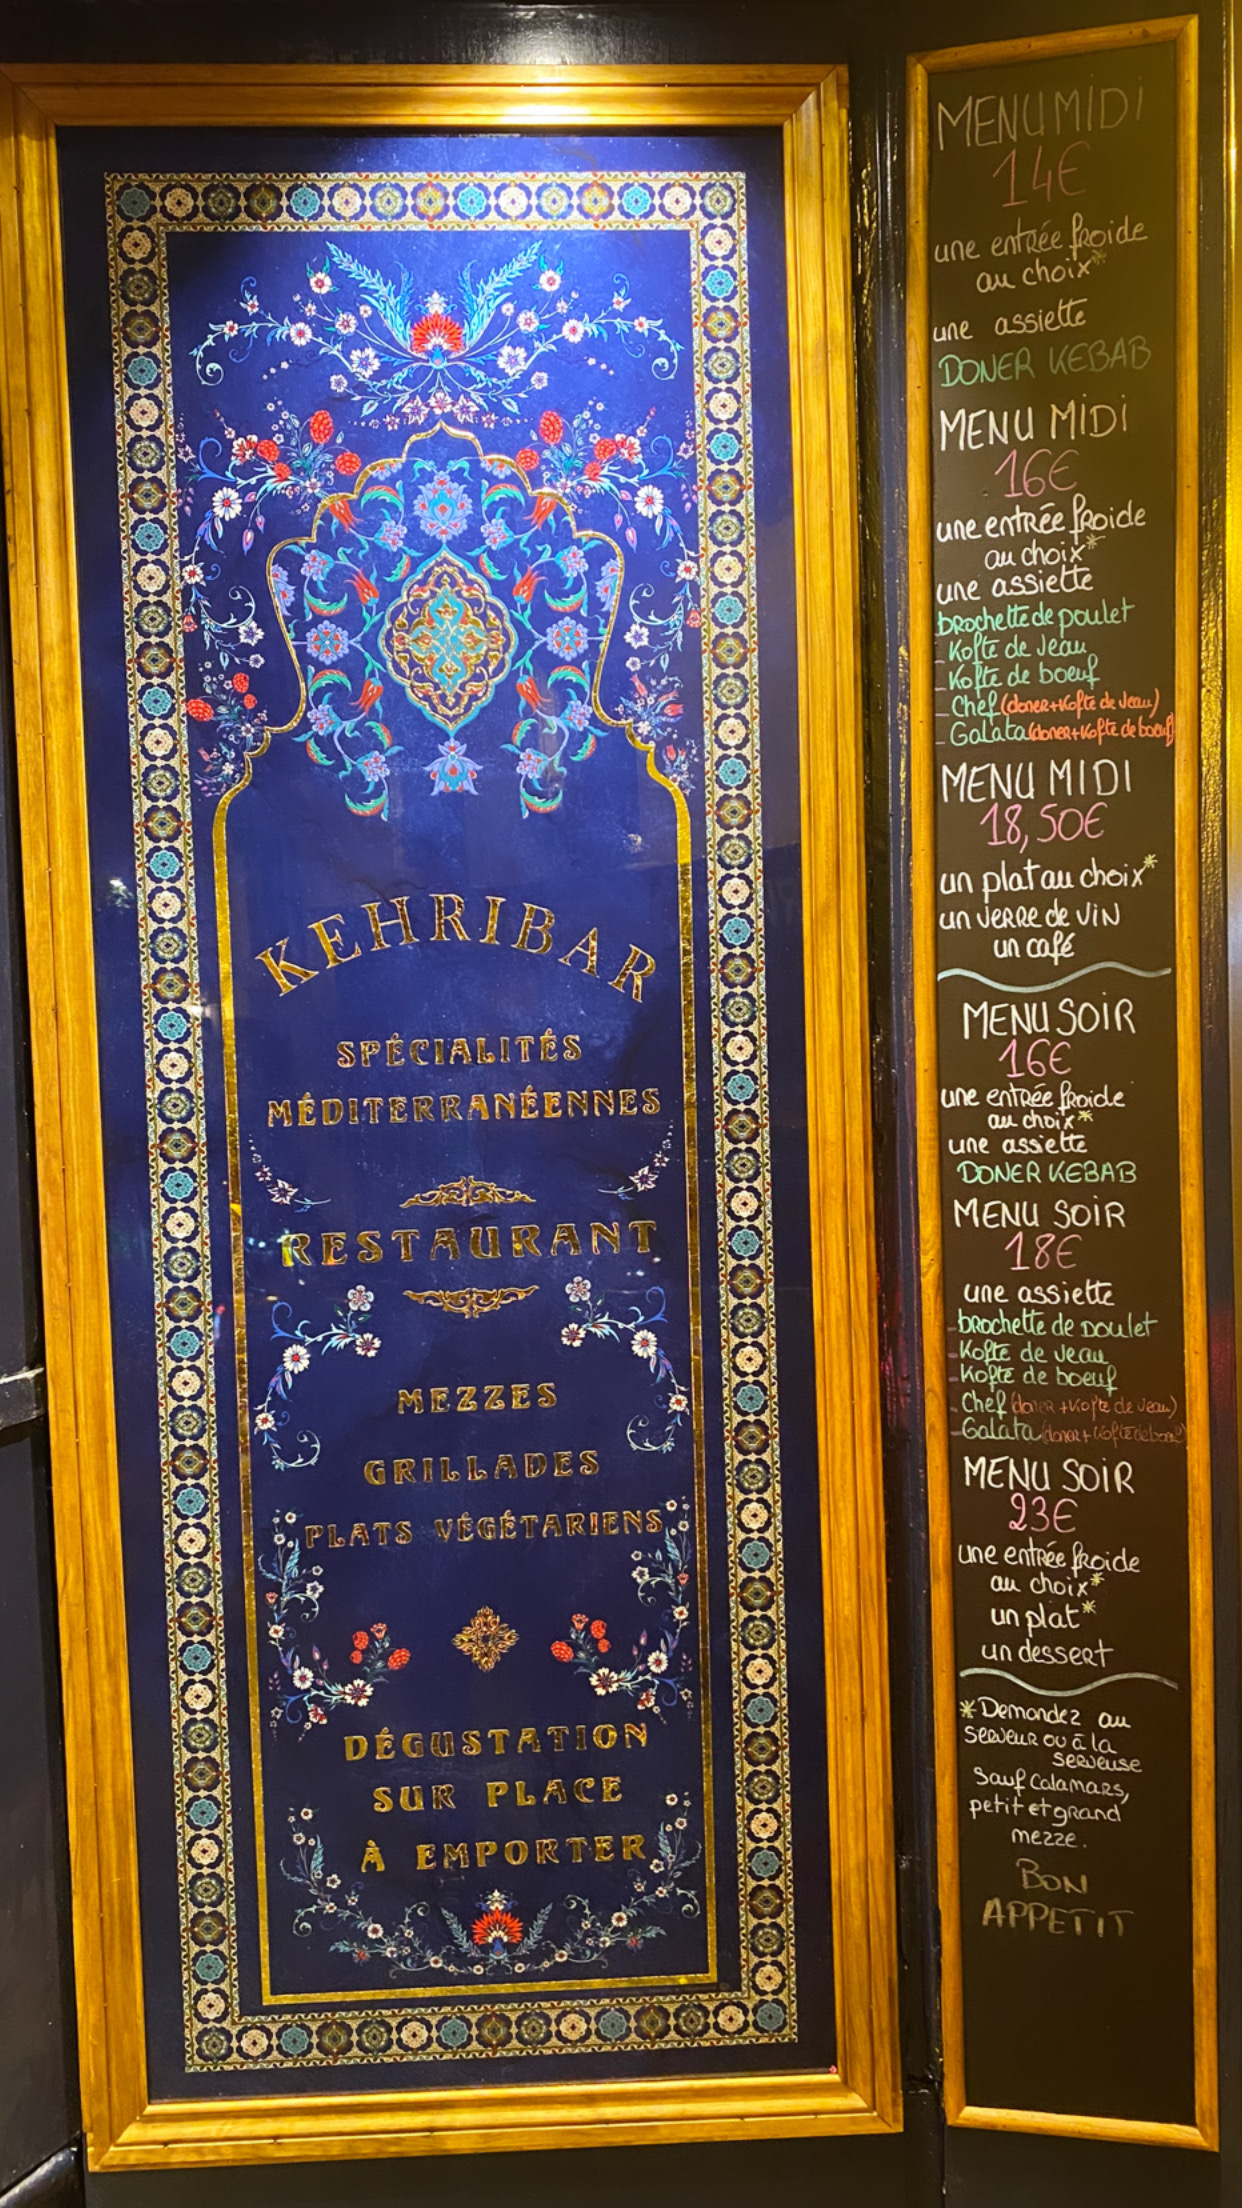 KEHRIBAR
SPÉCIALITÉS
MÉDITERRANÉENNES
RESTAURANT
MEZZES
GRILLADES
PLATS VÉGÉTARIENS
DÉGUSTATION
SUR PLACE
À EMPORTER
MENU MIDI
14€
une entrée froide
au choix*
une assiette
DONER KEBAB
MENU MIDI
16€
une entrée froide
au choix*
une assiette
brochette de poulet
- Kofte de veau
- Kofte de boeuf
- Chef (doner+Kofte de veau)
- Galata (doner+Kofte de boeuf)
MENU MIDI
18,50€
un plat au choix*
un verre de vin
un café
MENU SOIR
16€
une entrée froide
au choix*
une assiette
DONER KEBAB
MENU SOIR
18€
une assiette
- brochette de poulet
- Kofte de veau
- Kofte de boeuf
- Chef (doner + Kofte de veau)
- Galata (doner + Kofte de boeuf)
MENU SOIR
23€
une entrée froide
au choix*
un plat*
un dessert
*Demandez au
serveur ou à la
serveuse
Sauf Calamars,
petit et grand
mezze.
BON
APPETIT